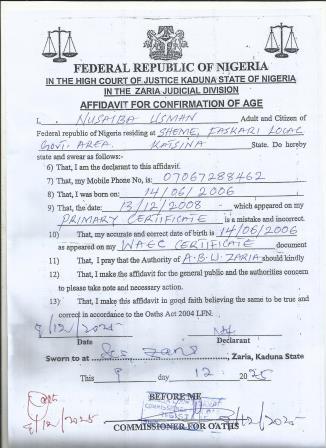 FEDERAL REPUBLIC OF NIGERIA
IN THE HIGH COURT OF JUSTICE KADUNA STATE OF NIGERIA
IN THE ZARIA JUDICIAL DIVISION
AFFIDAVIT FOR CONFIRMATION OF AGE
I, NUSAIBA USMAN Adult and Citizen of
Federal republic of Nigeria residing at SHEME, FASKARI LOCAL
GOVT. AREA. KATSINA State. Do hereby
state and swear as follows:-
6) That, I am the declarant to this affidavit.
7) That, my Mobile Phone No, is: 07067288462
8) That, I was born on: 14/06/2006
9) That, the date: 13/12/2008 which appeared on my
PRIMARY CERTIFICATE is a mistake and incorrect.
10) That, my accurate and correct date of birth is 14/06/2006
as appeared on my WAEC CERTIFICATE document
11) That, I pray that the Authority of A.B.U. ZARIA should kindly
12) That, I make the affidavit for the general public and the authorities concern
to please take note and necessary action.
13) That, I make this affidavit in good faith believing the same to be true and
correct in accordance to the Oaths Act 2004 LFN.
9/12/2025
Date Declarant
Sworn to at , Zaria, Kaduna State
This 9 day 12 2025
BEFORE ME
9/12/2025 9/12/2025
COMMISSIONER FOR OATHS